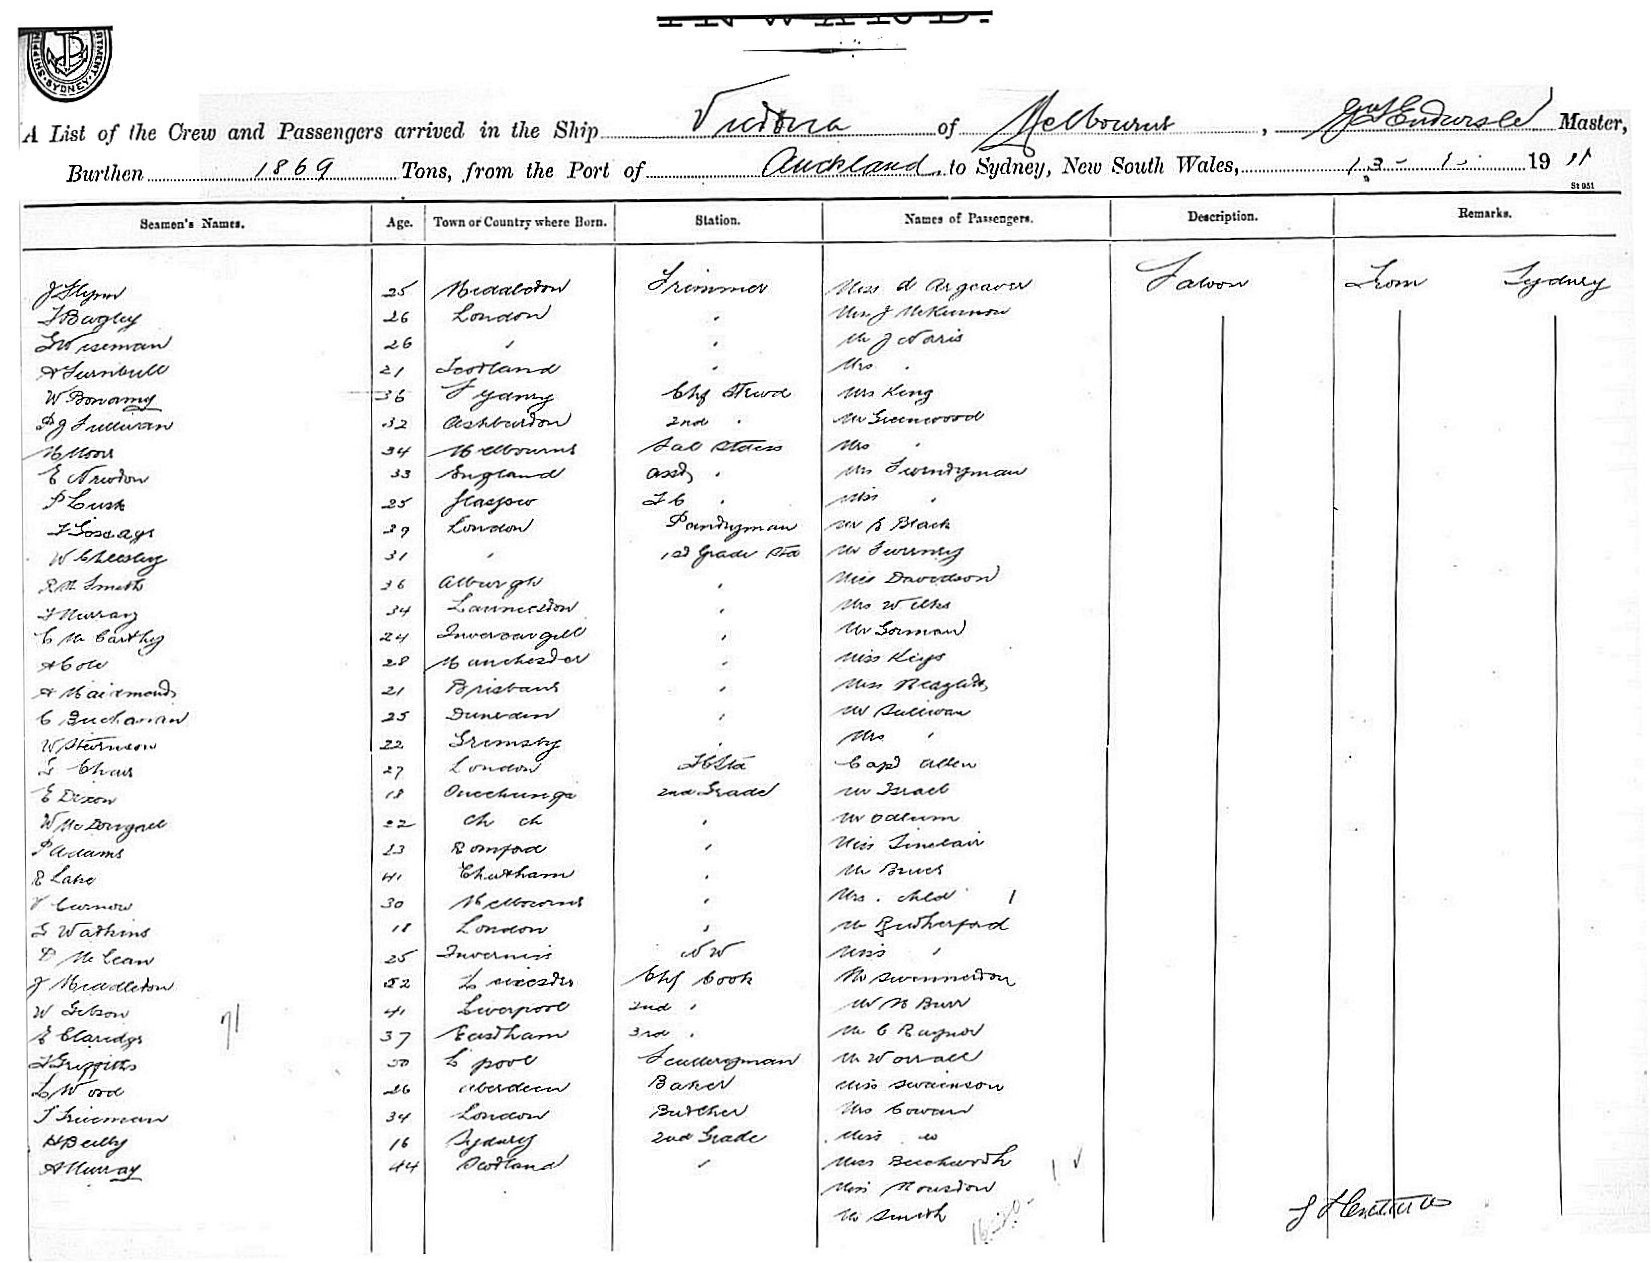 INWARD.
SHIPPING DEPARTMENT SYDNEY
A List of the Crew and Passengers arrived in the Ship Victoria of Melbourne, Master,
Burthen 1869 Tons, from the Port of Auckland to Sydney, New South Wales, 13 - 1 - 1911
St 951
Seamen's Names. Age. Town or Country where Born. Station. Names of Passengers. Description. Remarks.
J Flynn 25 Middleton Trimmer Miss Saloon From Sydney
T Bagley 26 London " Mr J McKinnon
G Wiseman 26 " " Mr J Norris
A Turnbull 21 Scotland " Mrs "
W Bonamy 36 Sydney Chf Stwd Mrs King
P J Sullivan 32 Ashburton 2nd " Mr Greenwood
M Moor 34 Melbourne Sal Stdess Mrs "
E Newton 33 England Asst " Mrs Swindyman
P Lusk 25 Glasgow F C " Miss "
T Gosage 39 London Pantryman Mr E Black
W Cheesley 31 " 1st Grade Std Mr Sweeney
R H Smith 36 " Miss Davidson
T Murray 34 Launceston " Mrs Wilks
C McCarthy 24 Invercargill " Mr Gorman
A Cole 28 Manchester " Miss Keys
A 21 Brisbane " Miss
C Buchanan 25 Dunedin " Mr Sullivan
W 22 Grimsby " Mrs "
G Chas 27 London Capt Allen
E Dixon 18 Onehunga 2nd Grade Mr Israel
W McDougall 22 Ch Ch " Mr Odlum
P Adams 23 Romford " Miss Sinclair
R Lake 41 Chatham " Mr Bruce
Curnow 30 Melbourne " Mrs " child 1
G Watkins 18 London " Mr Rutherford
D McLean 25 Inverness N W Miss "
J Middleton 52 Leicester Chf Cook Mr Swinnerton
W Gibson 41 Liverpool 2nd " Mr H Burr
E Claridge 37 Eastham 3rd " Mr C Raynor
T Griffiths 30 L'pool Sculleryman Mr Worrall
L Wood 26 Aberdeen Baker Miss Swainson
T Freeman 34 London Butcher Mrs Cowan
H Beilby 16 Sydney 2nd Grade Miss do
A Murray 44 Scotland " Miss Beckworth
71
Miss Houston
Mr Smith